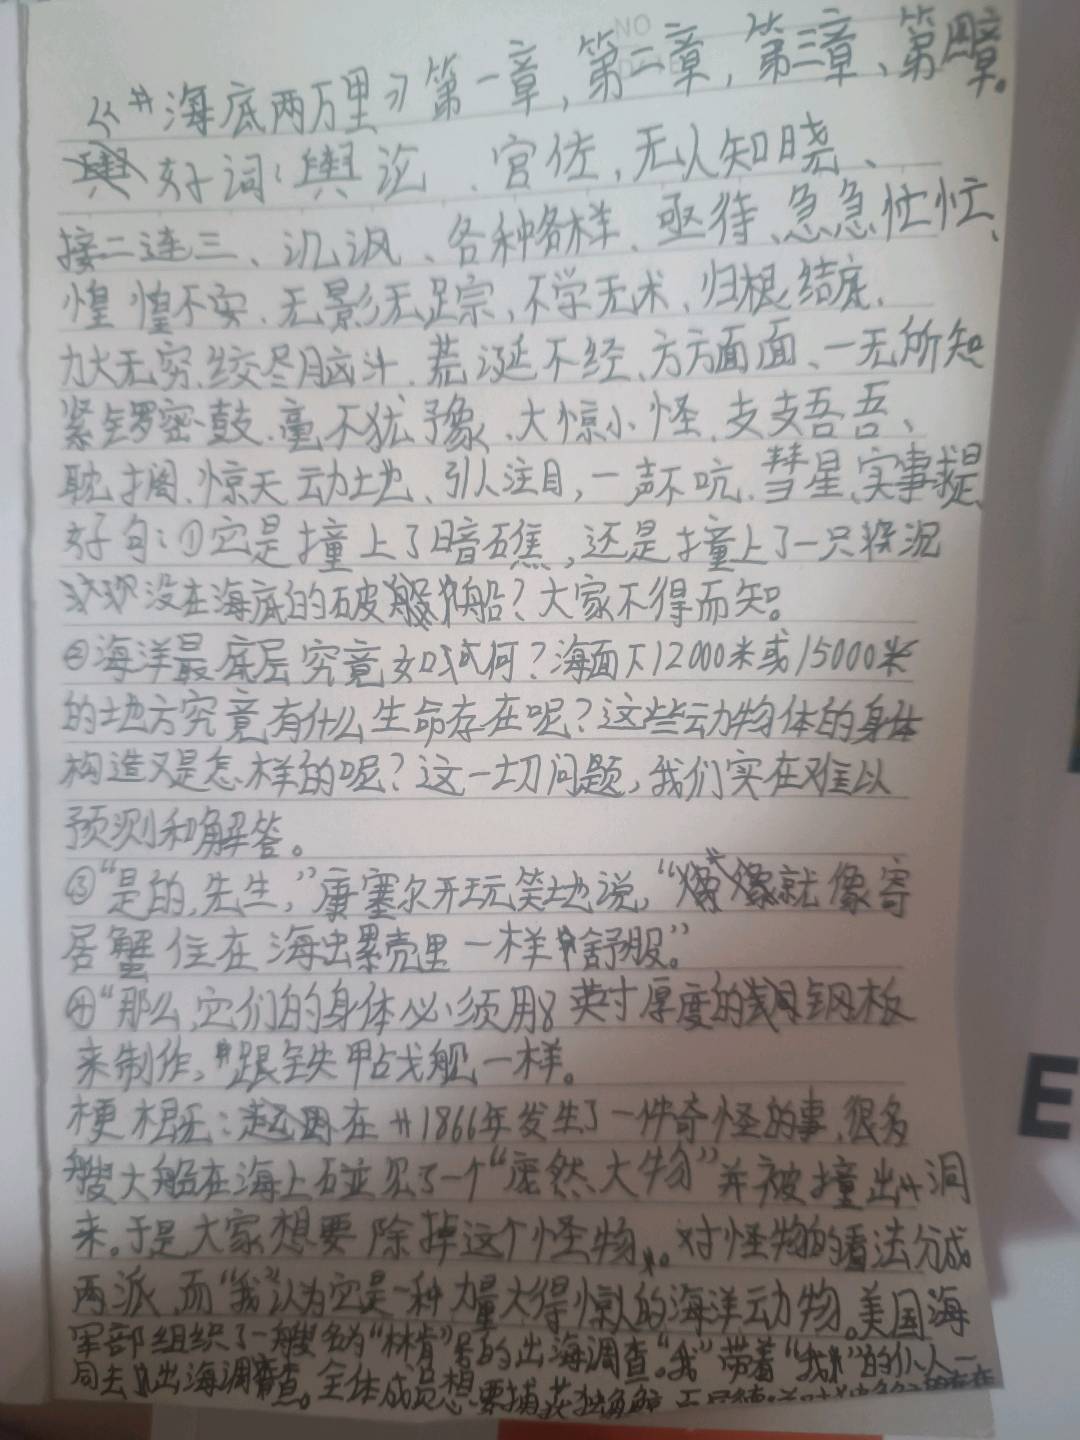 NO
《海底两万里》第一章，第二章，第三章、第四章。
好词：舆论、官佐，无人知晓、
接二连三、讥讽、各种各样、亟待、急急忙忙、
惶惶不安、无影无踪，不学无术、归根结底、
力大无穷、绞尽脑汁、荒诞不经、方方面面、一无所知
紧锣密鼓、毫不犹豫、大惊小怪、支支吾吾、
耽搁、惊天动地、引人注目，一声不吭、彗星、实事求是
好句：①它是撞上了暗礁，还是撞上了一只将沉
没在海底的破船？大家不得而知。
②海洋最底层究竟如何？海面下12000米或15000米
的地方究竟有什么生命存在呢？这些动物体的身体
构造又是怎样的呢？这一切问题，我们实在难以
预测和解答。
③“是的，先生，”康塞尔开玩笑地说，“就像寄
居蟹住在海螺壳里一样舒服。”
④“那么，它们的身体必须用8英寸厚度的钢板
来制作，跟铁甲战舰一样。
梗概：在1866年发生了一件奇怪的事，很多
艘大船在海上碰见了一个“庞然大物”并被撞出洞
来。于是大家想要除掉这个怪物。对怪物的看法分成
两派，而“我”认为它是一种力量大得惊人的海洋动物。美国海
军部组织了一艘名为“林肯”号的出海调查。“我”带着“我”的仆人一
同去出海调查。全体成员想要捕获独角鲸
E